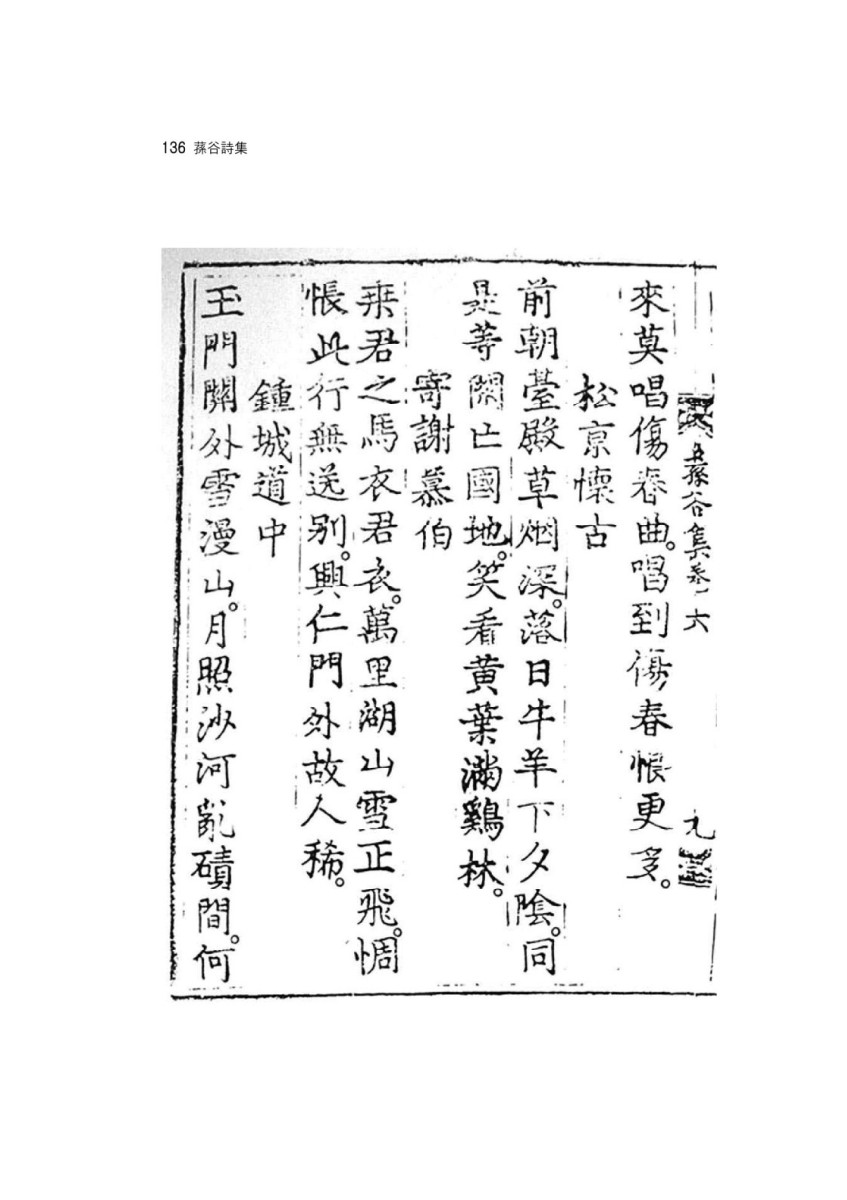 136 蓀谷詩集
蓀谷集卷六 九
來莫唱傷春曲。唱到傷春悵更多。
松京懷古
前朝臺殿草烟深。落日牛羊下夕陰。同
是等閑亡國地。笑看黃葉滿鷄林。
寄謝慕伯
乘君之馬衣君衣。萬里湖山雪正飛。惆
悵此行無送別。興仁門外故人稀。
鍾城道中
玉門關外雪漫山。月照沙河亂磧間。何